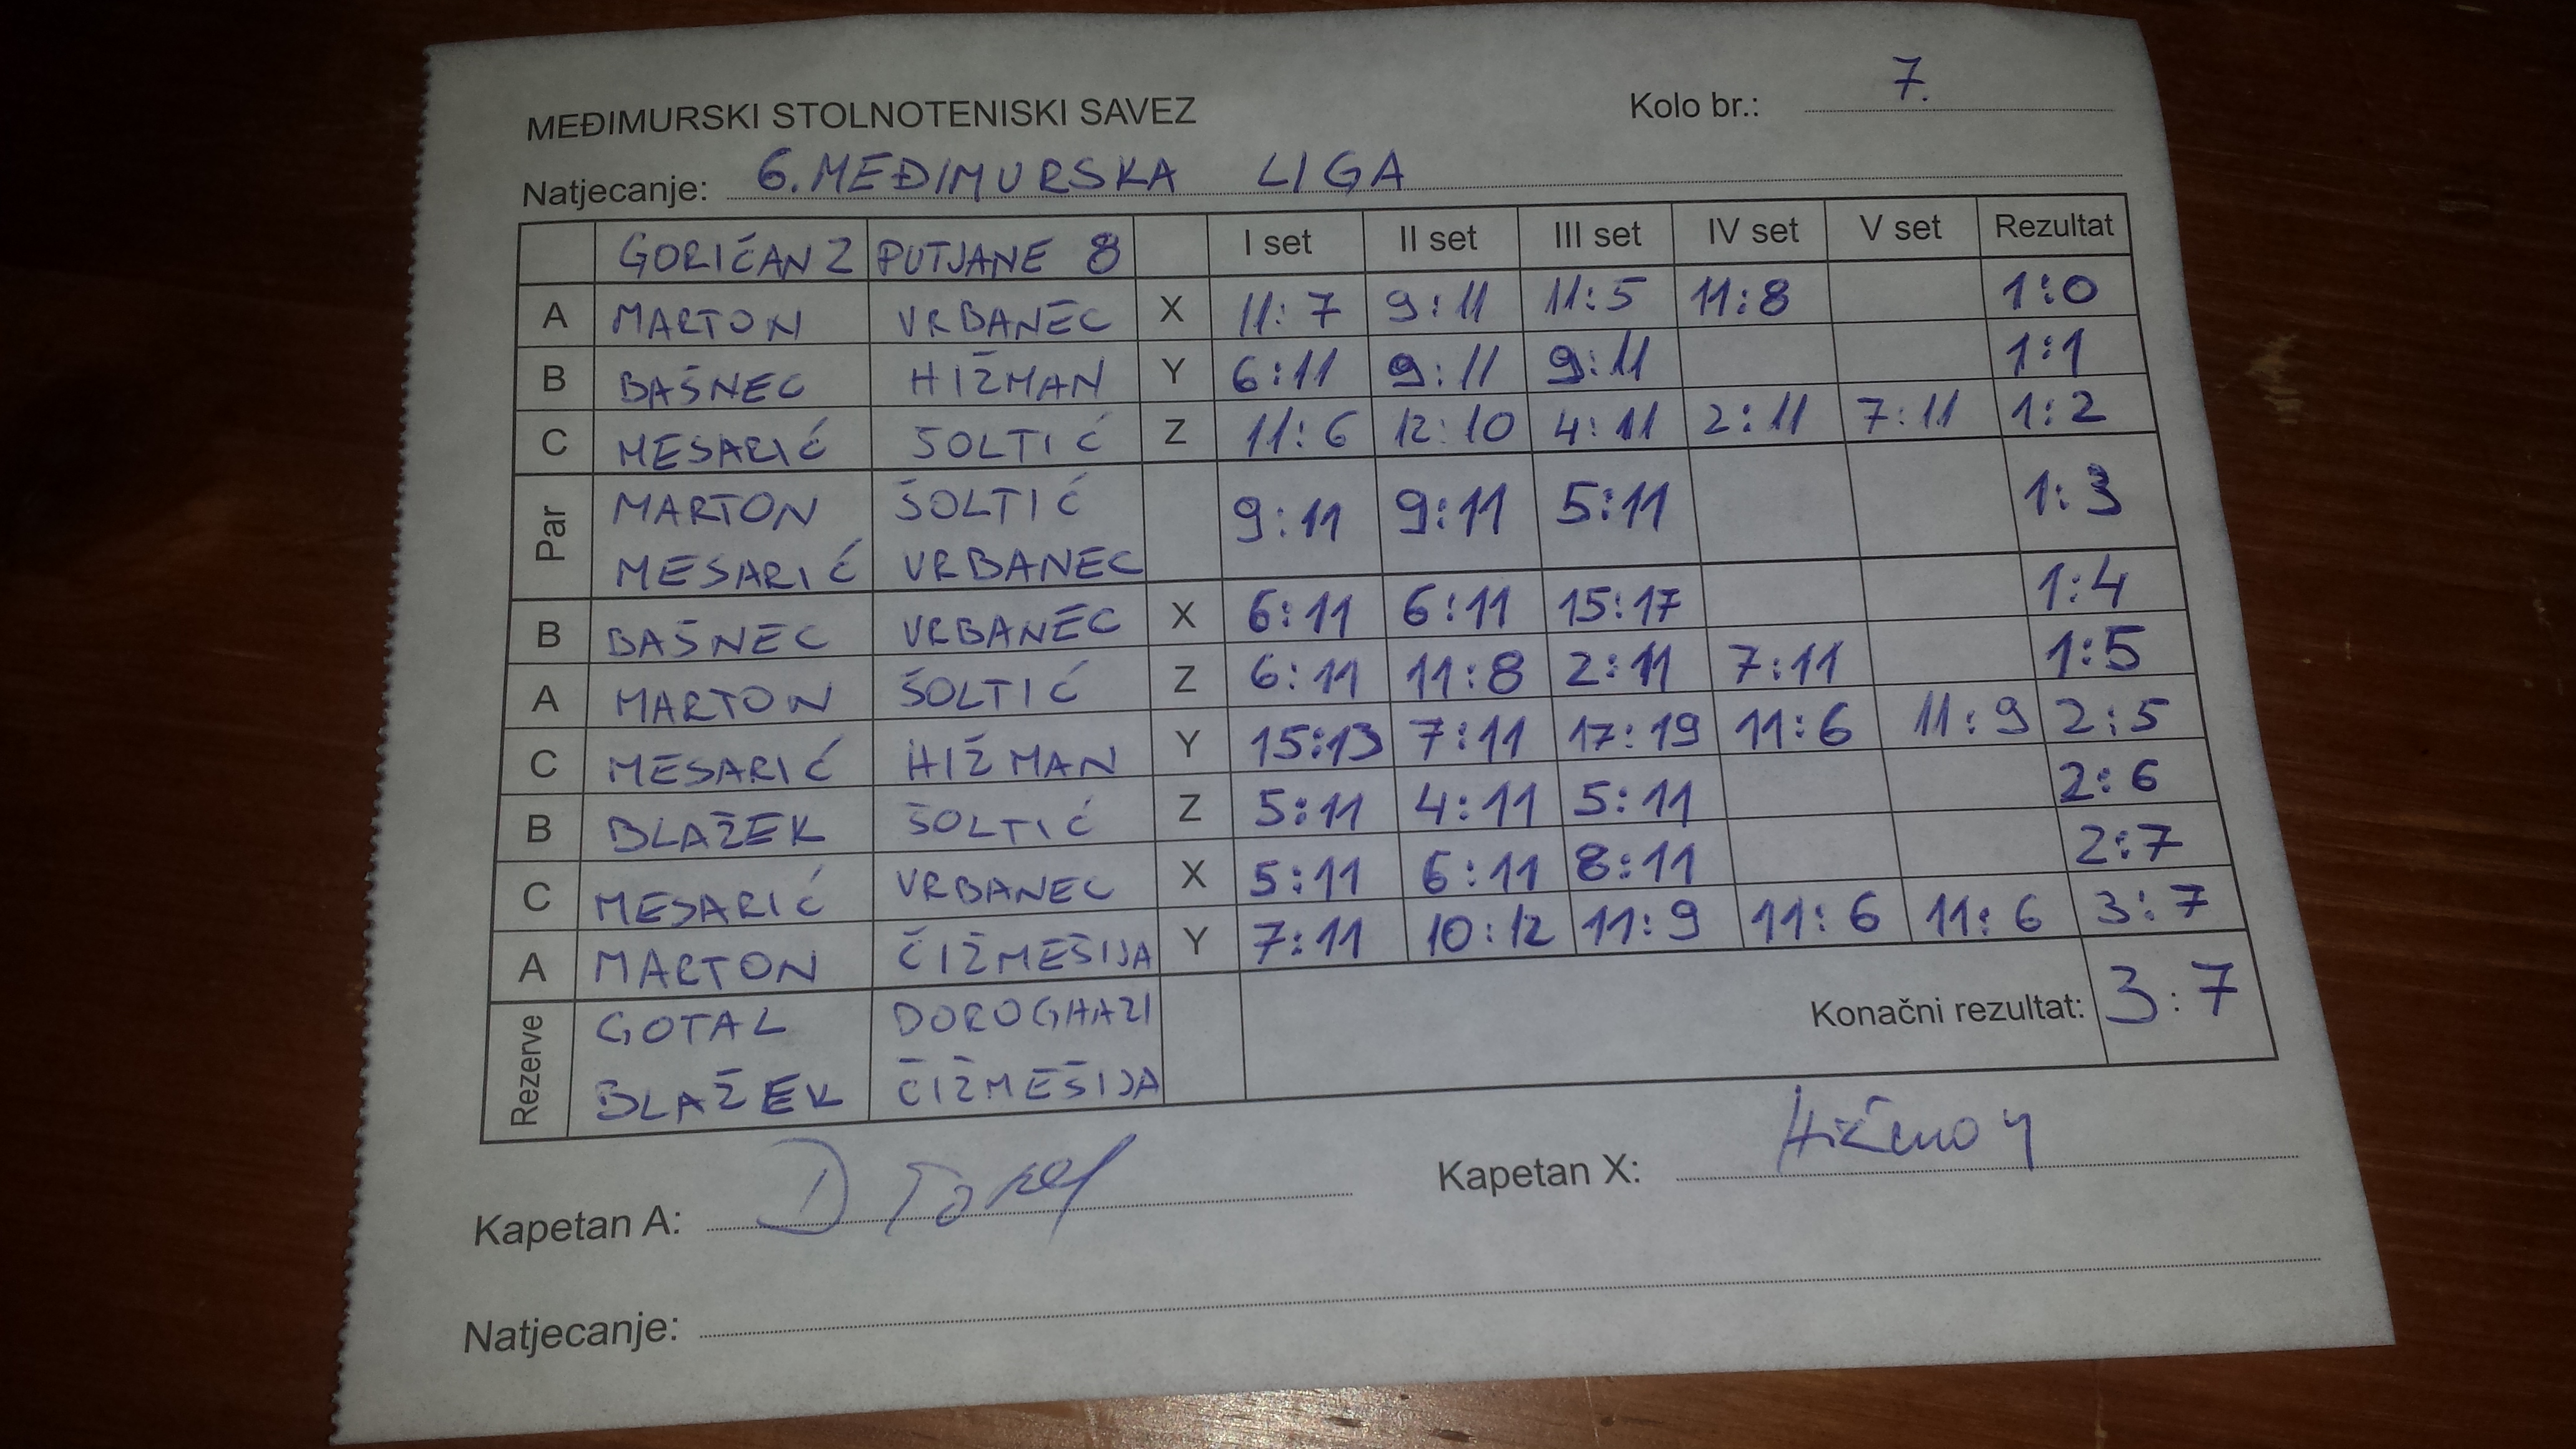 MEĐIMURSKI STOLNOTENISKI SAVEZ Kolo br.: 7.
Natjecanje: 6. MEĐIMURSKA LIGA
GORIČAN 2 PUTJANE 8 I set II set III set IV set V set Rezultat
A MARTON VRBANEC X 11:7 9:11 11:5 11:8 1:0
B BAŠNEC HIŽMAN Y 6:11 9:11 9:11 1:1
C MESARIĆ ŠOLTIĆ Z 11:6 12:10 4:11 2:11 7:11 1:2
Par MARTON ŠOLTIĆ 9:11 9:11 5:11 1:3
MESARIĆ VRBANEC
B BAŠNEC VRBANEC X 6:11 6:11 15:17 1:4
A MARTON ŠOLTIĆ Z 6:11 11:8 2:11 7:11 1:5
C MESARIĆ HIŽMAN Y 15:13 7:11 17:19 11:6 11:9 2:5
B BLAŽEK ŠOLTIĆ Z 5:11 4:11 5:11 2:6
C MESARIĆ VRBANEC X 5:11 6:11 8:11 2:7
A MARTON ČIŽMEŠIJA Y 7:11 10:12 11:9 11:6 11:6 3:7
Rezerve GOTAL DOROGHAZI Konačni rezultat: 3:7
BLAŽEK ČIŽMEŠIJA
Kapetan A: Kapetan X:
Natjecanje: